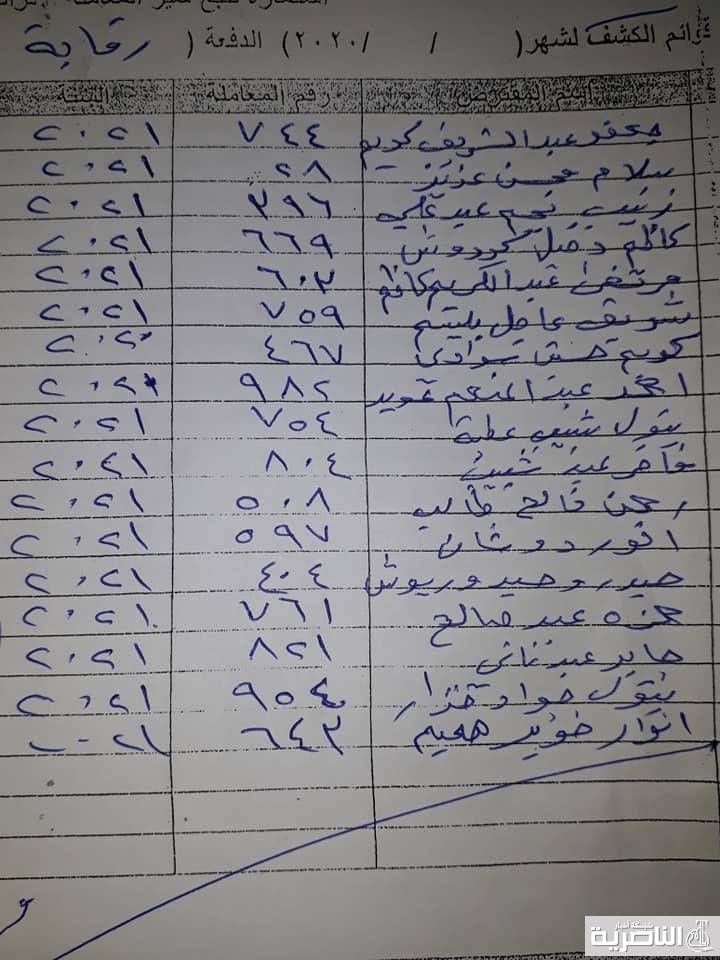 رائم الكشف لشهر ( / /٢٠٢٠) الدفعة ( رقابة
إسم المقترض رقم المعاملة السنة
جعفر عبد الشريف كريم ٧٤٤ ٢٠٢١
سلام محسن عزيز ٢٨ ٢٠٢١
زينب نجم عبد علي ٣٩٦ ٢٠٢١
كاظم دخيل كردوش ٦٦٩ ٢٠٢١
مرتضى عبد الكريم كاظم ٦٠٣ ٢٠٢١
شريف عاجل يليتم ٧٥٩ ٢٠٢١
كريم حسن سوادي ٤٦٧ ٢٠٢٠
احمد عبد المنعم عويد ٩٨٢ ٢٠٢٠
بتول شبيب عطية ٧٥٤ ٢٠٢١
فاخر عبد شبيب ٨٠٤ ٢٠٢١
رحمن فالح طالب ٥٠٨ ٢٠٢١
انور دوشان ٥٩٧ ٢٠٢١
حيدر وحيد وريوش ٤٠٤ ٢٠٢١
حمزه عبد صالح ٧٦١ ٢٠٢١
جابر عبد ناهي ٨٢١ ٢٠٢١
بتول جواد نزار ٩٥٤ ٢٠٢١
انوار خوير هميم ٦٤٣ ٢٠٢١
شبكة اخبار
الناصرية